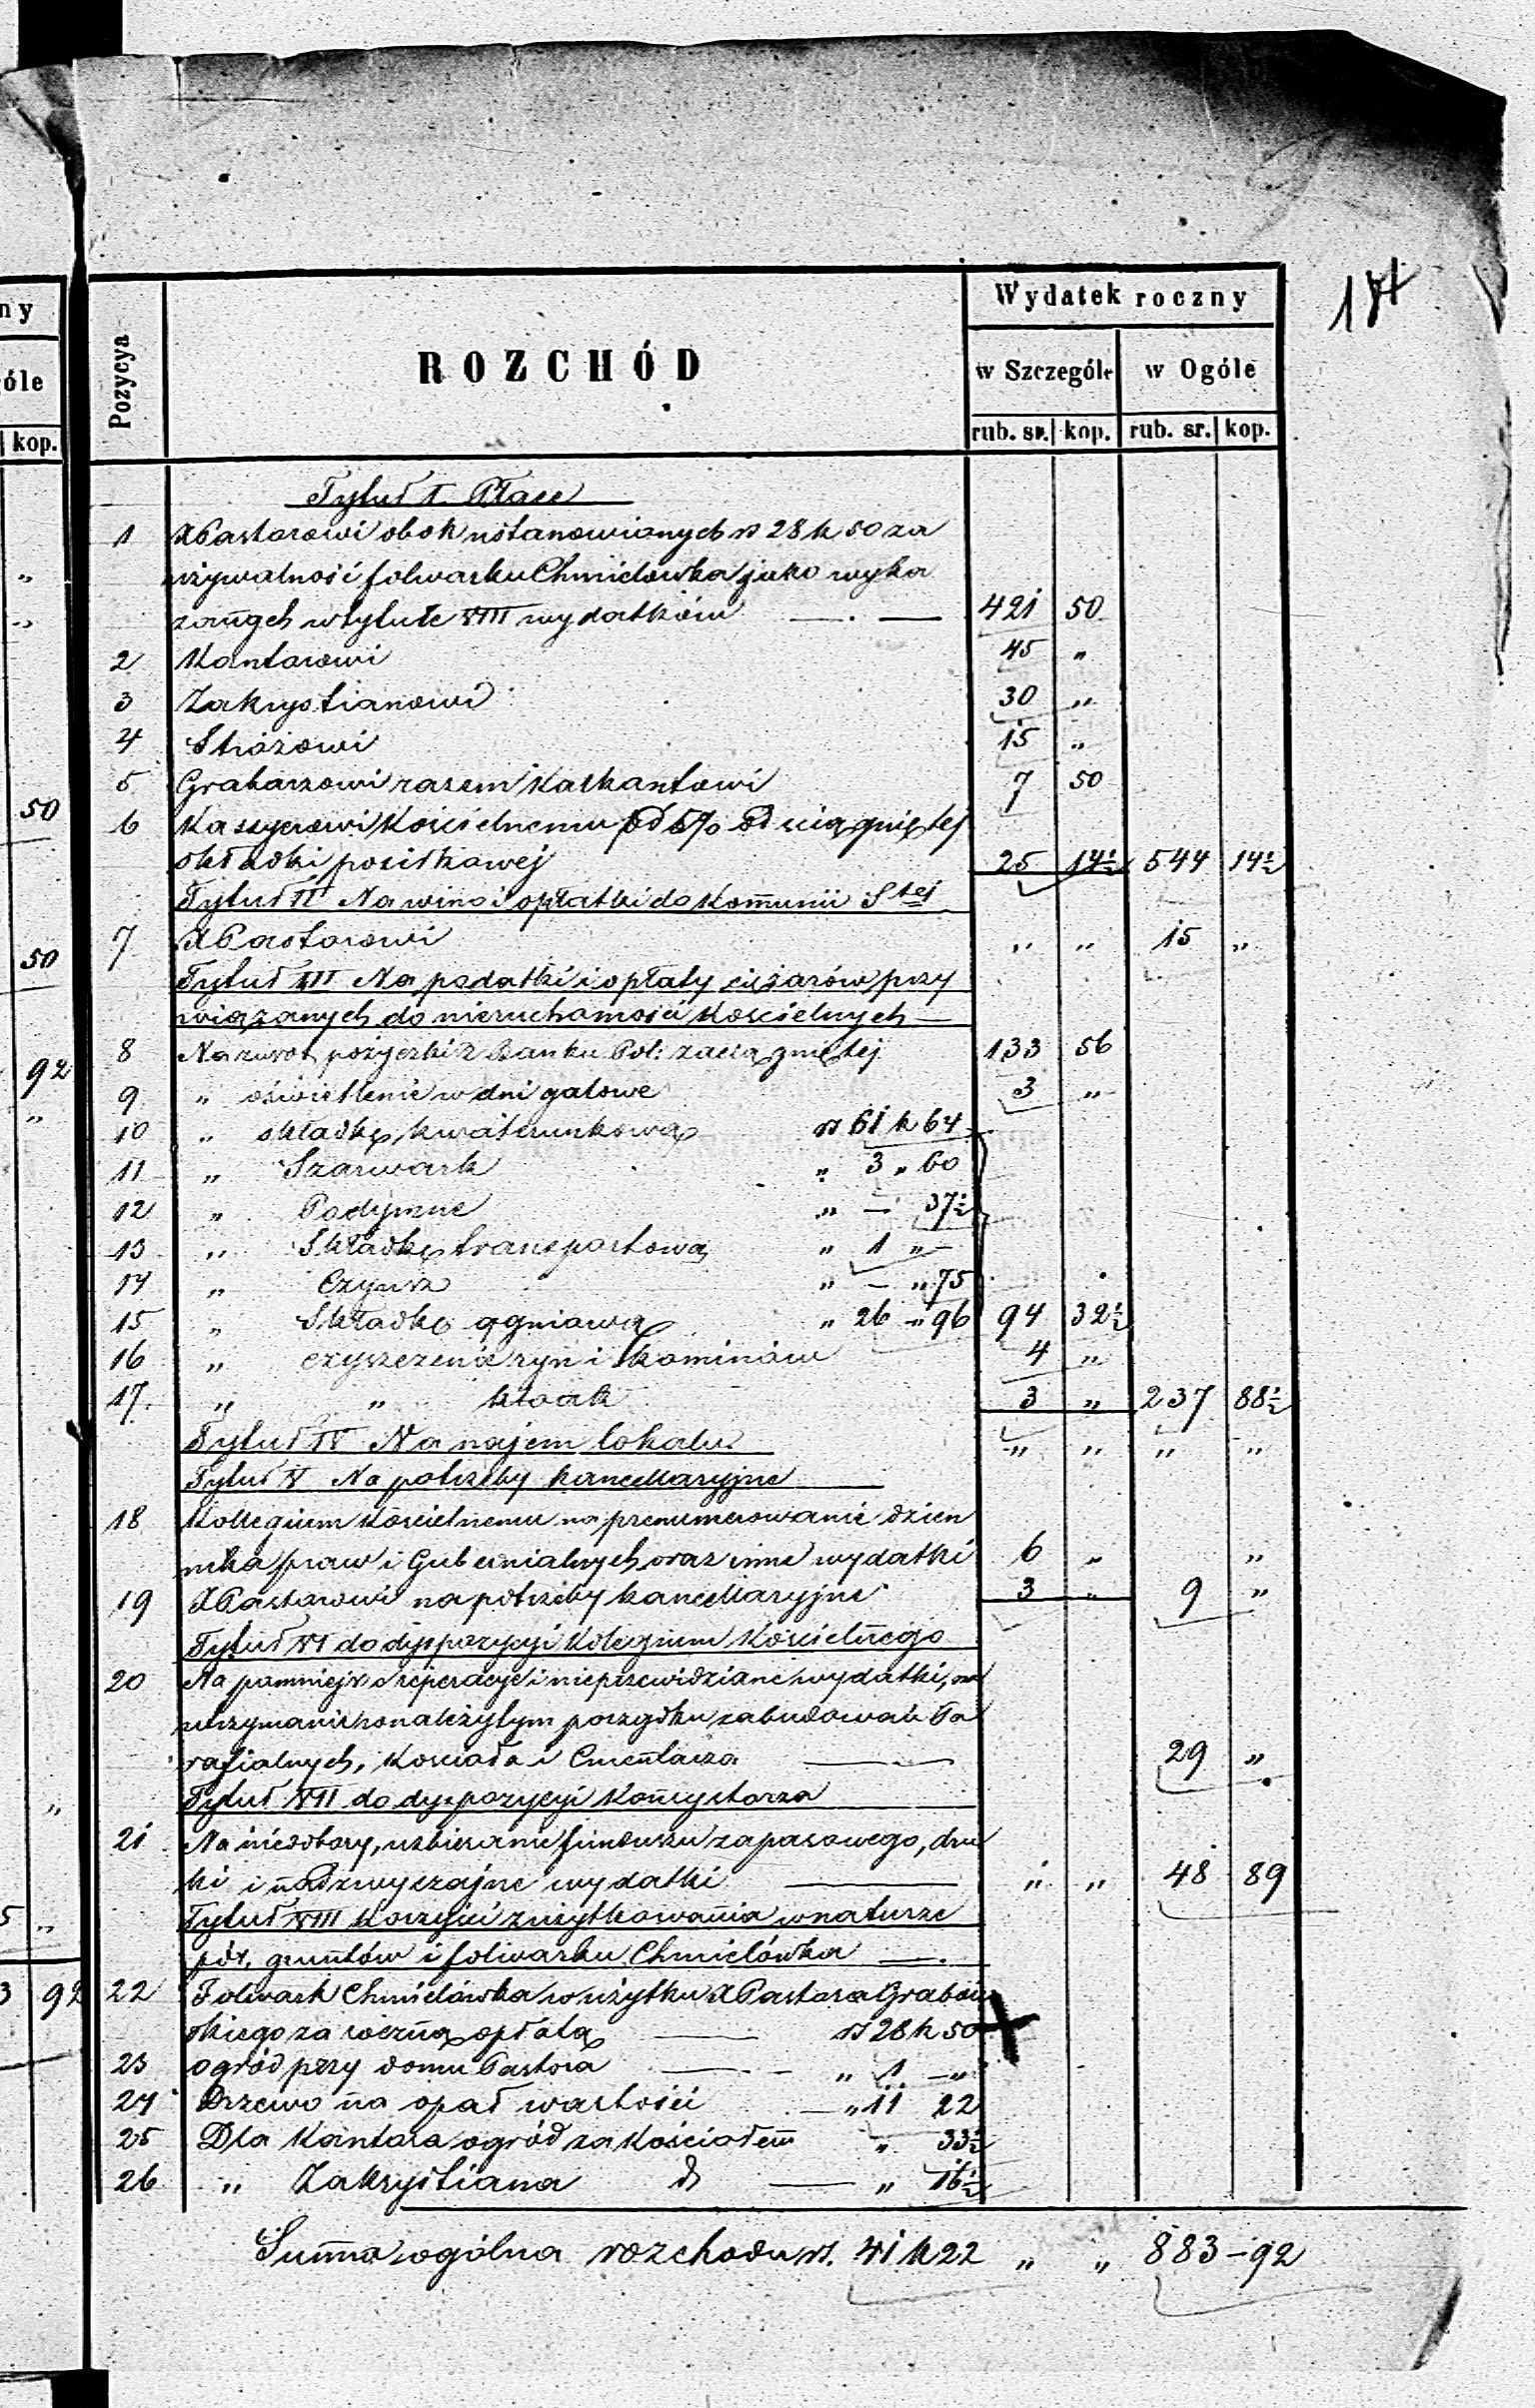 174
ny
óle
kop.
Pozycya
ROZCHÓD
Wydatek roczny
w Szczególe w Ogóle
rub. sr. kop. rub. sr. kop.
Tytuł I. Płace
1 X Pastorowi obok ustanowionych rs 28 k 50 za
używalność folwarku Chmielowka jako wyka
zanych w tytule VIII wydatków — . — 421 50
2 Kantorowi 45 „
3 Zakrystianowi 30 „
4 Stróżowi 15 „
5 Grabarzowi razem Kalkantowi 7 50
50
6 Kassyerowi Kościelnemu od 5% od ściągniętej
składki posiłkowej 25 14½ 544 14½
Tytuł II Na wino i opłatki do Kommunii Stej
7 X Pastorowi „ „ 15 „
50
Tytuł III Na podatki i opłaty ciężarów przy
wiązanych do nieruchomości Kościelnych —
8 Na zwrot pożyczki z Banku Pol: zaciągniętej 133 56
92
9 „ oświetlenie w dni galowe 3 „
10 „ składkę kwaterunkową rs 61 k 64
11 „ Szarwark „ 3 „ 60
12 „ Podymne „ — 37½
13 „ Składkę transportową „ 1 „ —
14 „ Czynsz „ — „ 75
15 „ Składkę ogniową „ 26 „ 96 94 32½
16 „ czyszczenie ryn i Kominów 4 „
17 „ „ kloak 3 „ 237 88½
Tytuł IV Na najem lokalu „ „ „ „
Tytuł V Na potrzeby kancellaryjne
18 Kollegium Kościelnemu na prenumerowanie dzien
nika praw i Gubernialnych oraz inne wydatki 6 „ „
19 X Pastorowi na potrzeby kancellaryjne 3 „ 9 „
Tytuł VI do dyspozycyi Kolegium Kościelnego
20 Na pomniejsze reperacye i nieprzewidziane wydatki, na
utrzymanie w należytym porządku zabudowań Pa
rafialnych, Kościoła i Cmentarza — 29 „
Tytuł VII do dyspozycyi Konsystorza
21 Na niedobory, uzbieranie funduszu zapasowego, dru
ki i nadzwyczajne wydatki — „ „ 48 89
5 „
Tytuł VIII Korzyści z użytkowania w naturze
pól, gruntów i folwarku Chmielówka — .
3 92
22 Folwark Chmielówka w użytku X Pastora Grabow
skiego za wieczną opłatą — rs 28 k 50
23 ogród przy domu Pastora — „ 1 — „
24 Drzewo na opał wartości — „ 11 22
25 Dla Kantora ogród za Kościołem „ 33½
26 „ Zakrystiana d — „ 16½
Summa ogólna rozchodu rs. 41 k 22 „ „ 883 – 92